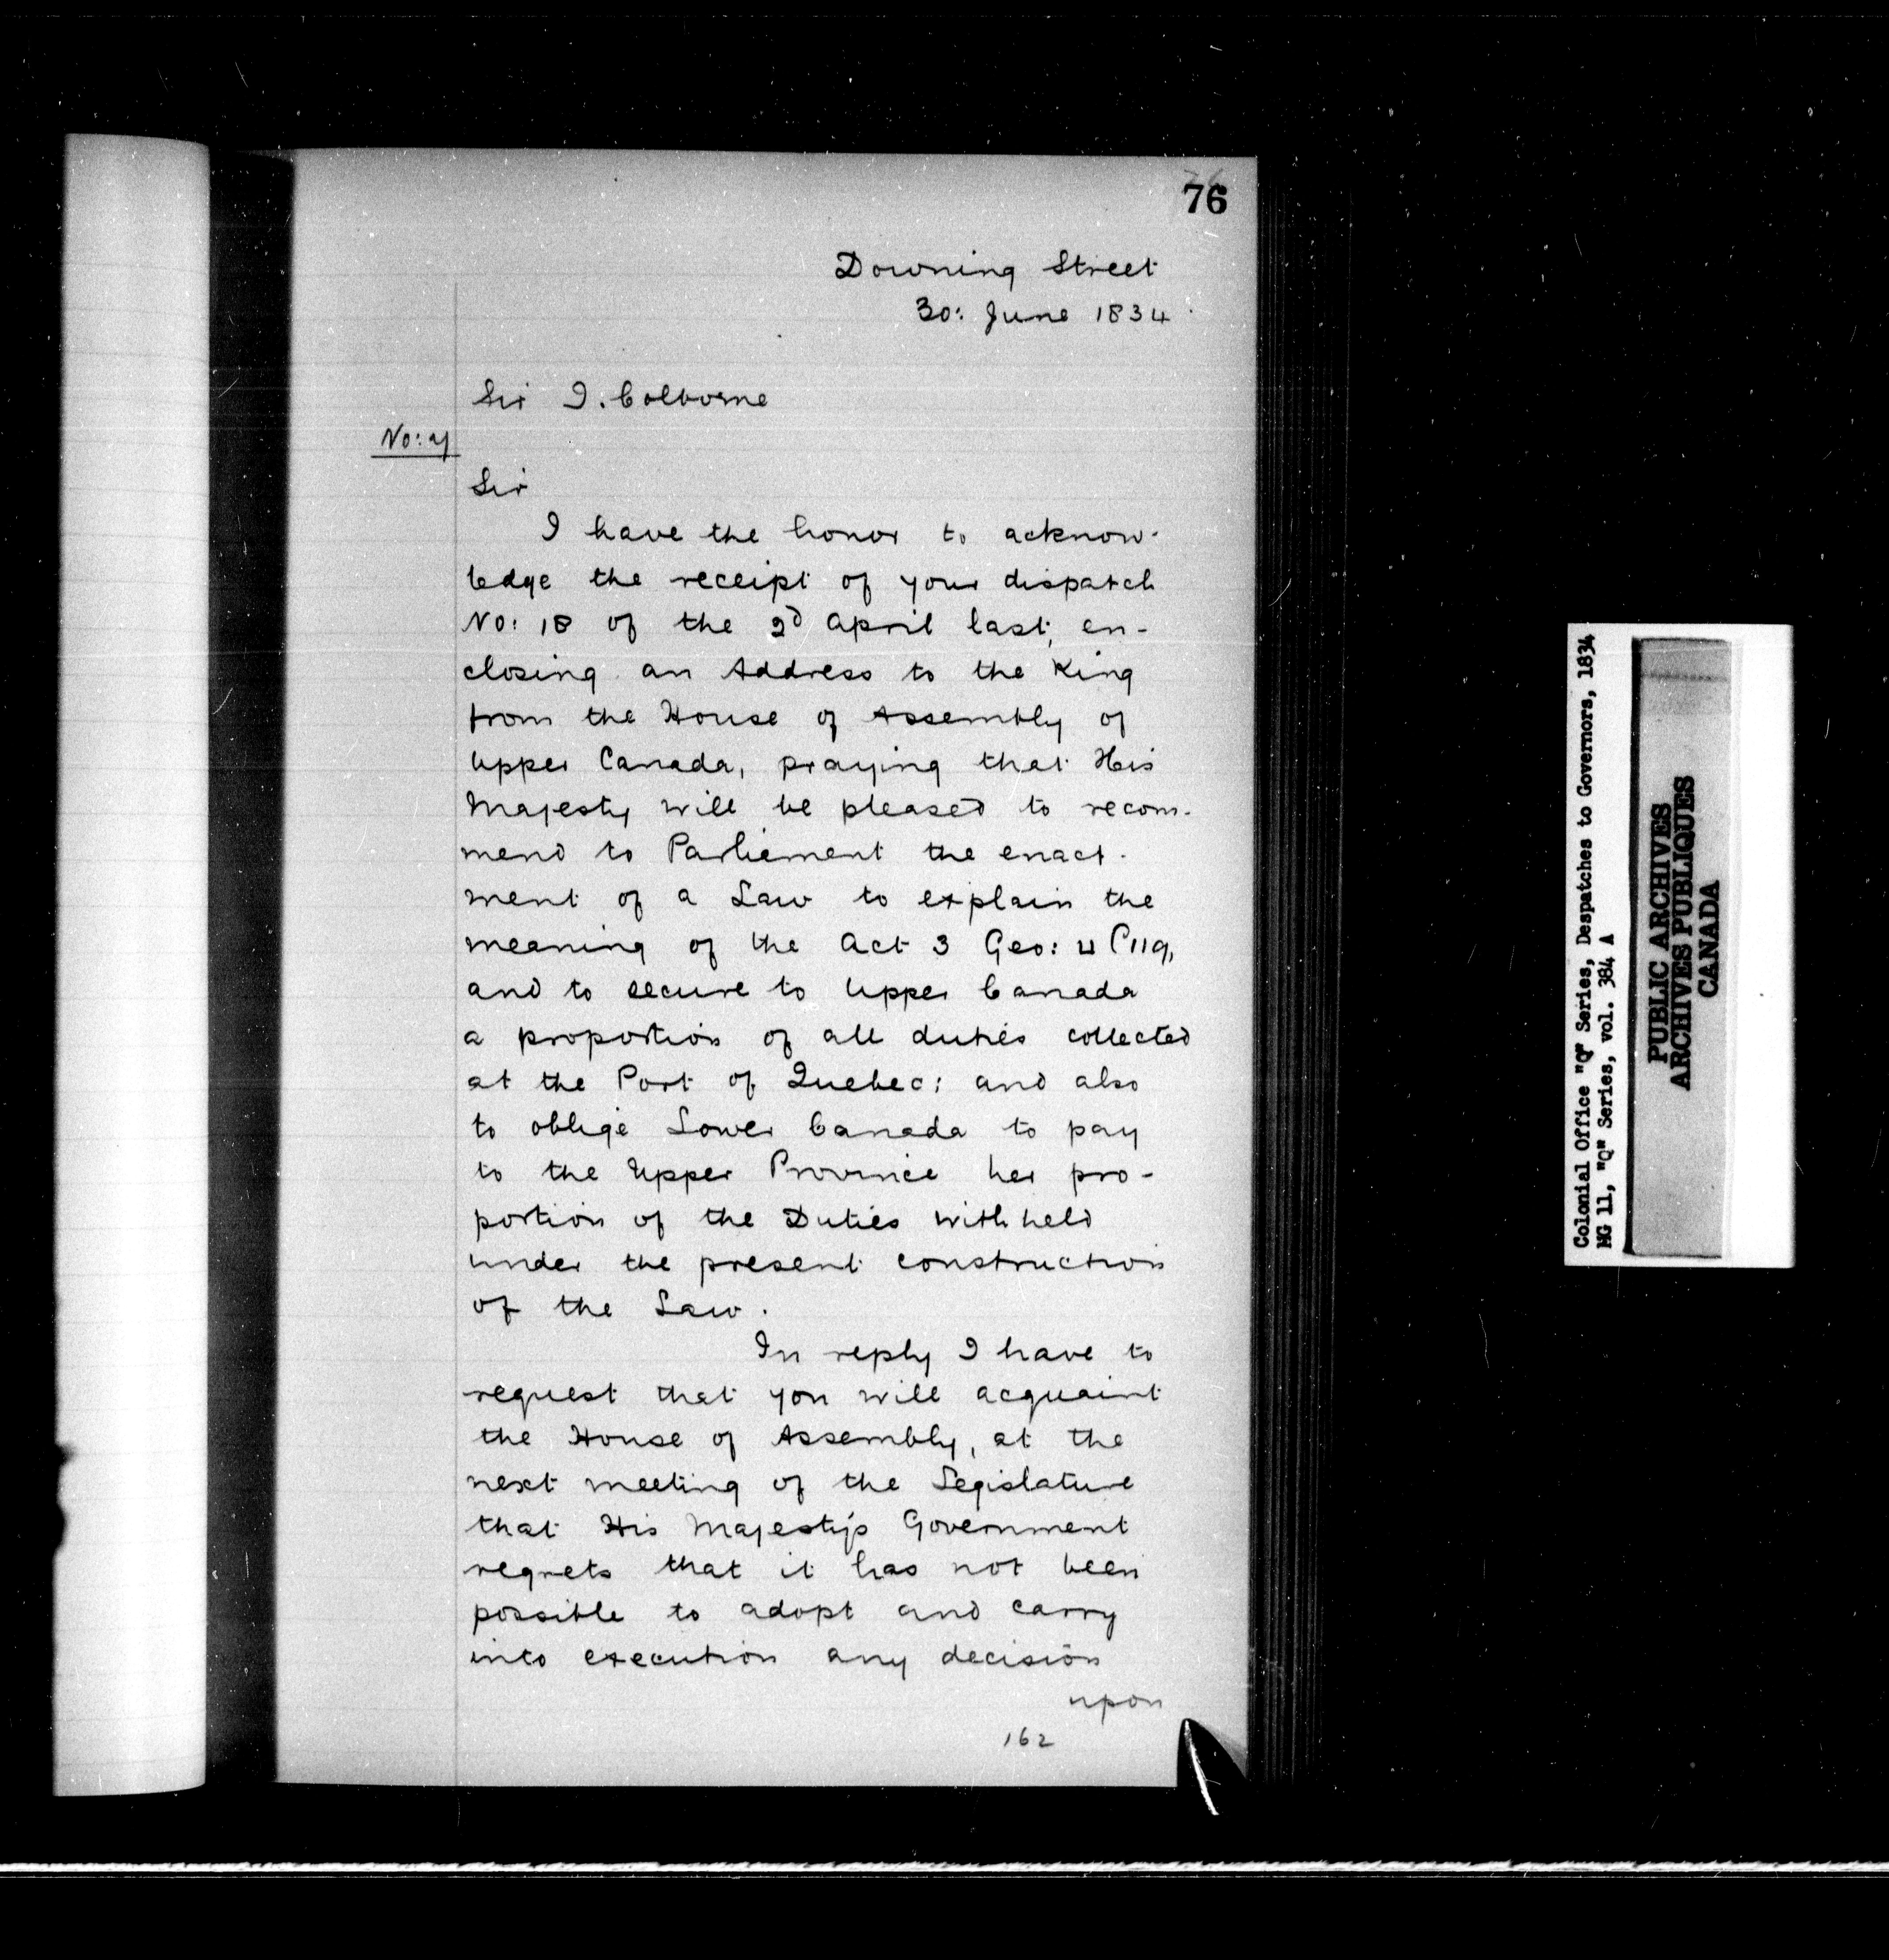 76
Downing Street
30: June 1834
Sir J. Colborne
No:
Sir
I have the honor to acknow-
ledge the receipt of your dispatch
No: 18 of the 2d April last, en-
closing an Address to the King
from the House of Assembly of
Upper Canada, praying that His
Majesty will be pleased to recom-
mend to Parliement the enact-
ment of a Law to explain the
meaning of the Act 3 Geo: 4 C119,
and to secure to Upper Canada
a proportion of all duties collected
at the Port of Quebec; and also
to oblige Lower Canada to pay
to the Upper Province her pro-
portion of the Duties withheld
under the present construction
of the Law.
In reply I have to
request that you will acquaint
the House of Assembly, at the
next meeting of the Legislature
that His Majesty's Government
regrets that it has not been
possible to adopt and carry
into execution any decision
upon
162
Colonial Office "Q" Series, Despatches to Governors, 1834
MG 11, "Q" Series, vol. 384 A
PUBLIC ARCHIVES
ARCHIVES PUBLIQUES
CANADA